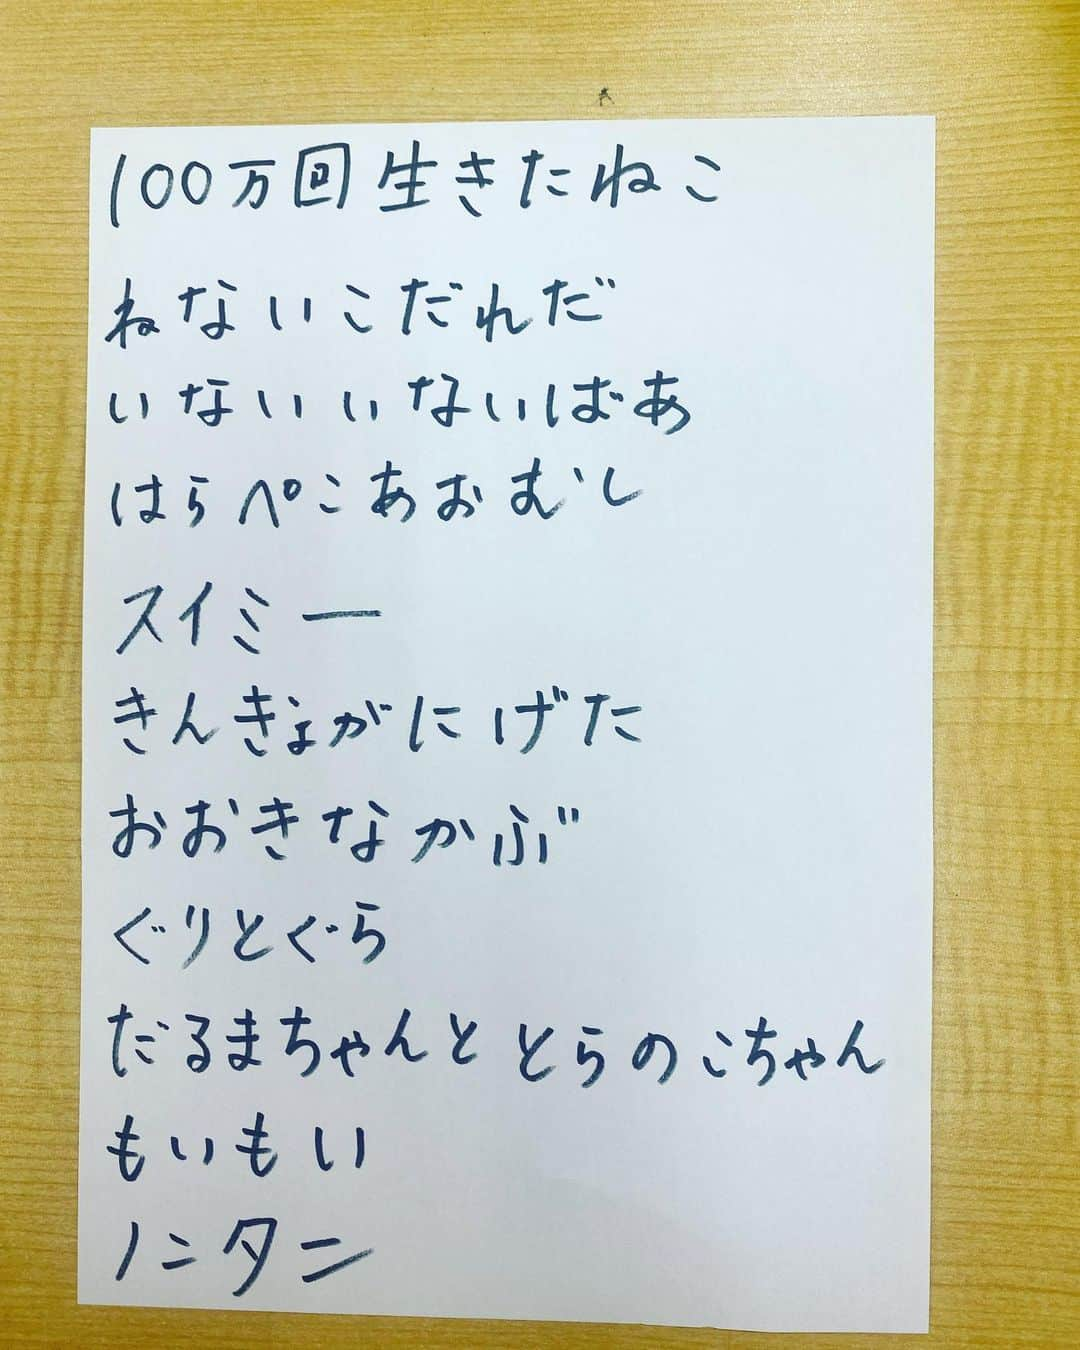 100万回生きたねこ
ねないこだれだ
いないいないばあ
はらぺこあおむし
スイミー
きんぎょがにげた
おおきなかぶ
ぐりとぐら
だるまちゃんととらのこちゃん
もいもい
ノンタン